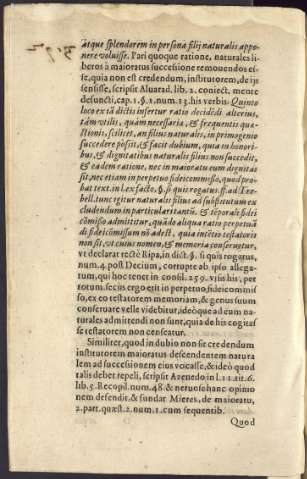 atque splendorem in persona filij naturalis appo-
nere voluisse. Pari quoque ratione, naturales li-
beros à maioratus successione remouendos es-
se, quia non est credendum, institutorem, de ijs
sensisse, scripsit Aluarad. lib. 2. coniect. mente
defuncti, cap. 1. §. 1. num. 13. his verbis: Quinto
loco ex iã dictis infertur ratio decidẽdi alterius,
tãm vtilis, quàm necessaria, & frequentis quæ-
stionis, scilicet, an filius naturalis, in primogenio
succedere possit, & facit dubium, quia in honori-
bus, & dignitatibus naturalis filius non succedit,
& eadem ratione, nec in maioratu eum dignitas
sit, nec etiam in perpetuo fideicommisso, quod pro-
bat text. in l. ex facto. §. si quis rogatus. ff. ad Tre-
bell. tunc igitur naturalis filius ad substitutum ex
cludendum in particuları tantũ, & tẽporale fidei
cõmisso admittitur, quãdo aliqua ratio perpetuã
di fideicõmissum nõ adest, quia intẽtio testatoris
non sit, vt eiuis nomen, & memoria conseruetur,
vt declarat rectè Ripa, in dict. §. si quis rogatus,
num. 4. post Decium, corrupte ab ipso allega-
tum, qui hoc tenet in consil. 259. visis his, per
totum. secùs ergo erit in perpetuo fideicommis-
so, ex eo testatorem memoriam, & genus suum
conseruare velle videbitur, ideòque ad eum na-
turales admittendi non sunt, quia de his cogitas
se testatorem non censeatur.
Similiter, quod in dubio non sit credendum
institutorem maioratus descendentem natura
lem ad successionem eius vocasse, & ideò quod
talis debet repeli, scripsit Azeuedo in l. 11. tit. 6.
lib. 5. Recopil. num. 48. & neruosè hanc opinio
nem defendit, & fundat Mieres, de maioratu,
2. part. quæst. 2. num. 1. cum sequentib.
Quod